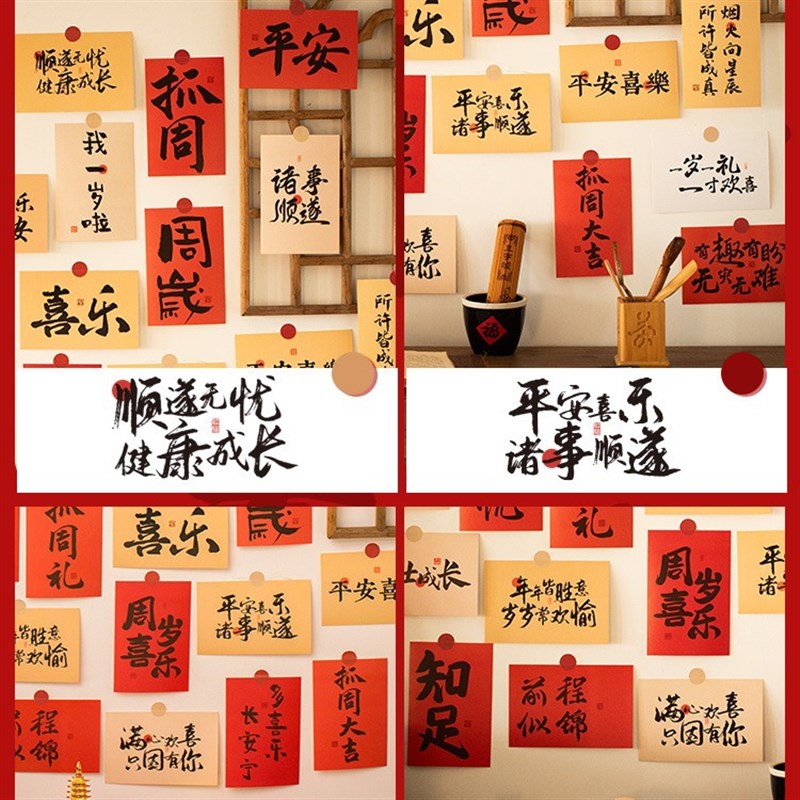 顺遂无忧
健康成长
抓周
平安
我一岁啦
诸事
顺遂
周歲
乐
安
喜乐
所许皆成
平安喜樂
顺遂无忧
健康成长
乐
歲
烟火向星辰
所许皆成真
平安喜乐
诸事顺遂
平安喜樂
岁
一岁一礼
一寸欢喜
抓周大吉
欢喜
有你
有趣有盼
无灾无难
福
平安喜乐
诸事顺遂
抓周礼
喜乐
歲
周岁
喜乐
平安喜乐
诸事顺遂
平安喜
皆胜意
常欢愉
前程
似锦
满心欢喜
只因有你
多喜乐
长安宁
抓周大吉
忧
礼
成长
年年皆胜意
岁岁常欢愉
周岁
喜乐
平安
诸
知足
前程
似锦
满心欢喜
只因有你